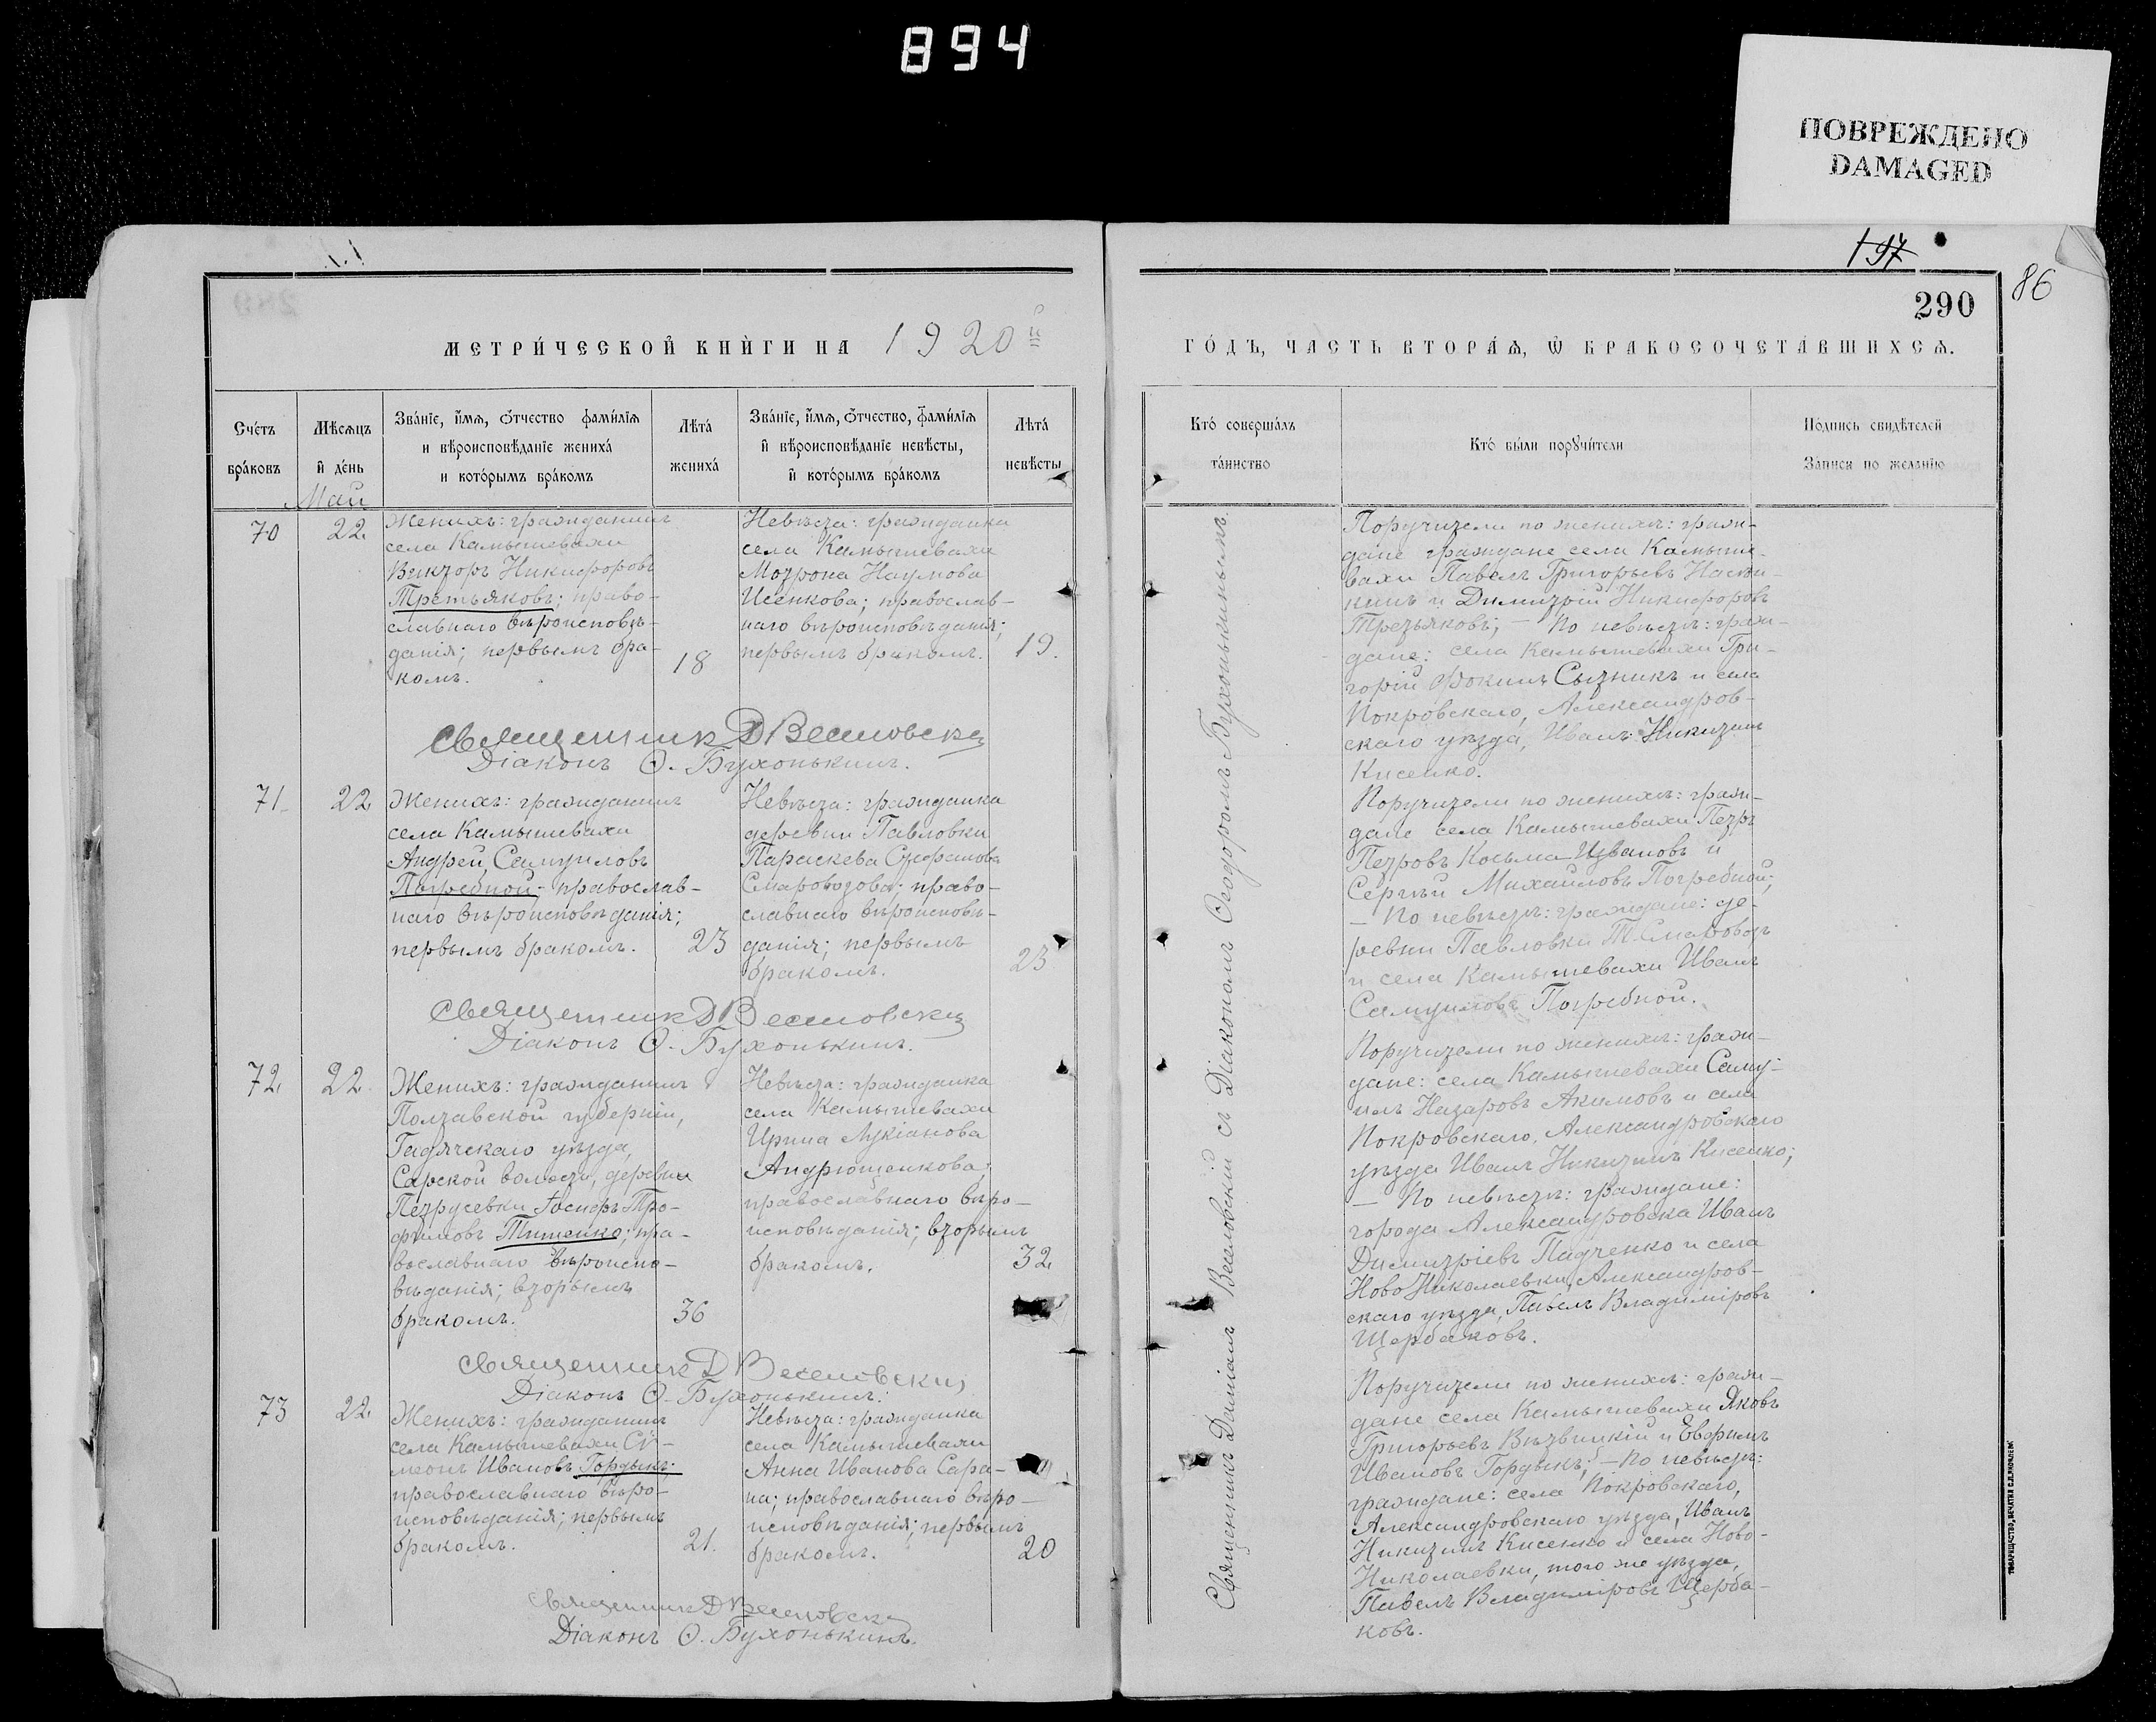 894
ПОВРЕЖДЕНО
DAMAGED
197
290
86
МЕТРИ́ЧЕСКОЙ КНИ́ГИ НА 1920й
ГО́ДЪ, ЧАСТЬ ВТОРА́Ѧ, Ѿ БРАКОСОЧЕТА́ВШИХСѦ.
Сче́тъ бра́ковъ
Мѣ́сѧцъ и҆ де́нь
Зва́нїе, и҆́мѧ, ѻ҆́тчество фами́лїѧ
и вѣроисповѣ́данїе жениха́
и кото́рымъ бра́комъ
Лѣта́ жениха́
Зва́нїе, и҆́мѧ, ѻ҆́тчество, фами́лїѧ
и҆ вѣроисповѣ́данїе невѣ́сты,
и҆ кото́рымъ бра́комъ
Лѣта́ невѣ́сты
Кто́ соверша́лъ та́инство
Кто́ бы́ли порꙋчи́тели
По́дпись свидѣ́телей
За́писи по жела́нїю
Май
70
22
Женихъ: гражданинъ
села Камышевахи
Викторъ Никифоровъ
Третьяковъ; право-
славнаго вѣроисповѣ-
данія; первымъ бра-
комъ.
18
Невѣста: гражданка
села Камышевахи
Мотрона Наумова
Исенкова; православ-
наго вѣроисповѣданія;
первымъ бракомъ.
19.
Поручители по женихѣ: граж-
дане граждане села Камыше-
вахи Павелъ Григорьевъ
и Димитрій Никифоровъ
Третьяковъ; — По невѣстѣ: граж-
дане: села Камышевахи Гри-
горій Фокинъ Сытникъ и села
Покровскаго, Александров-
скаго уѣзда, Иванъ Никитинъ
Кисенко.
Священникъ Д Веселовскі
Діаконъ Ѳ. Бухонькинъ.
71
22
Женихъ: гражданинъ
села Камышевахи
Андрей Самуиловъ
Погребной; православ-
наго вѣроисповѣданія;
первымъ бракомъ.
23
Невѣста: гражданка
деревни Павловки
Параскева Стефанова
право-
славнаго вѣроисповѣ-
данія; первымъ
бракомъ.
23
Поручители по женихѣ: граж-
дане села Камышевахи Петръ
Петровъ Косьма и
Сергѣй Михайловъ Погребной;
— По невѣстѣ: граждане: де-
ревни Павловки
и села Камышевахи Иванъ
Самуиловъ Погребной.
Священникъ Д Веселовскі
Діаконъ Ѳ. Бухонькинъ.
72
22
Женихъ: гражданинъ
Полтавской губерніи,
Гадячскаго уѣзда,
Сарской волости, деревни
Петрусевки Іосифъ Тро-
фимовъ Тишенко; пра-
вославнаго вѣроиспо-
вѣданія; вторымъ
бракомъ.
36
Невѣста: гражданка
села Камышевахи
Ирина Лукіанова
Андрющенкова;
православнаго вѣро-
исповѣданія; вторымъ
бракомъ.
32
Поручители по женихѣ: граж-
дане: села Камышевахи Саму-
илъ Назаровъ Акимовъ и села
Покровскаго, Александровскаго
уѣзда Иванъ Никитинъ Кисенко;
— По невѣстѣ: граждане:
города Александровска Иванъ
Димитріевъ Падченко и села
Ново Николаевки, Александров-
скаго уѣзда, Павелъ Владиміровъ
Щербаковъ.
Священникъ Д Веселовскі
Діаконъ Ѳ. Бухонькинъ.
73
22
Женихъ: гражданинъ
села Камышевахи Сѵ-
меонъ Ивановъ Гордыкъ;
православнаго вѣро-
исповѣданія; первымъ
бракомъ.
21.
Невѣста: гражданка
села Камышевахи
Анна Иванова Сара-
на; православнаго вѣро-
исповѣданія; первымъ
бракомъ.
20
Поручители по женихѣ: граж-
дане села Камышевахи Яковъ
Григорьевъ Вътвицкій и Евфимъ
Ивановъ Гордыкъ; — По невѣстѣ:
граждане: села Покровскаго,
Александровскаго уѣзда, Иванъ
Никитинъ Кисенко и села Ново-
Николаевки, того же уѣзда,
Павелъ Владиміровъ Щерба-
ковъ.
Священникъ Д Веселовскі
Діаконъ Ѳ. Бухонькинъ.
Священникъ Даміанъ Веселовскій съ Діакономъ Ѳеодоромъ Бухонькинымъ.